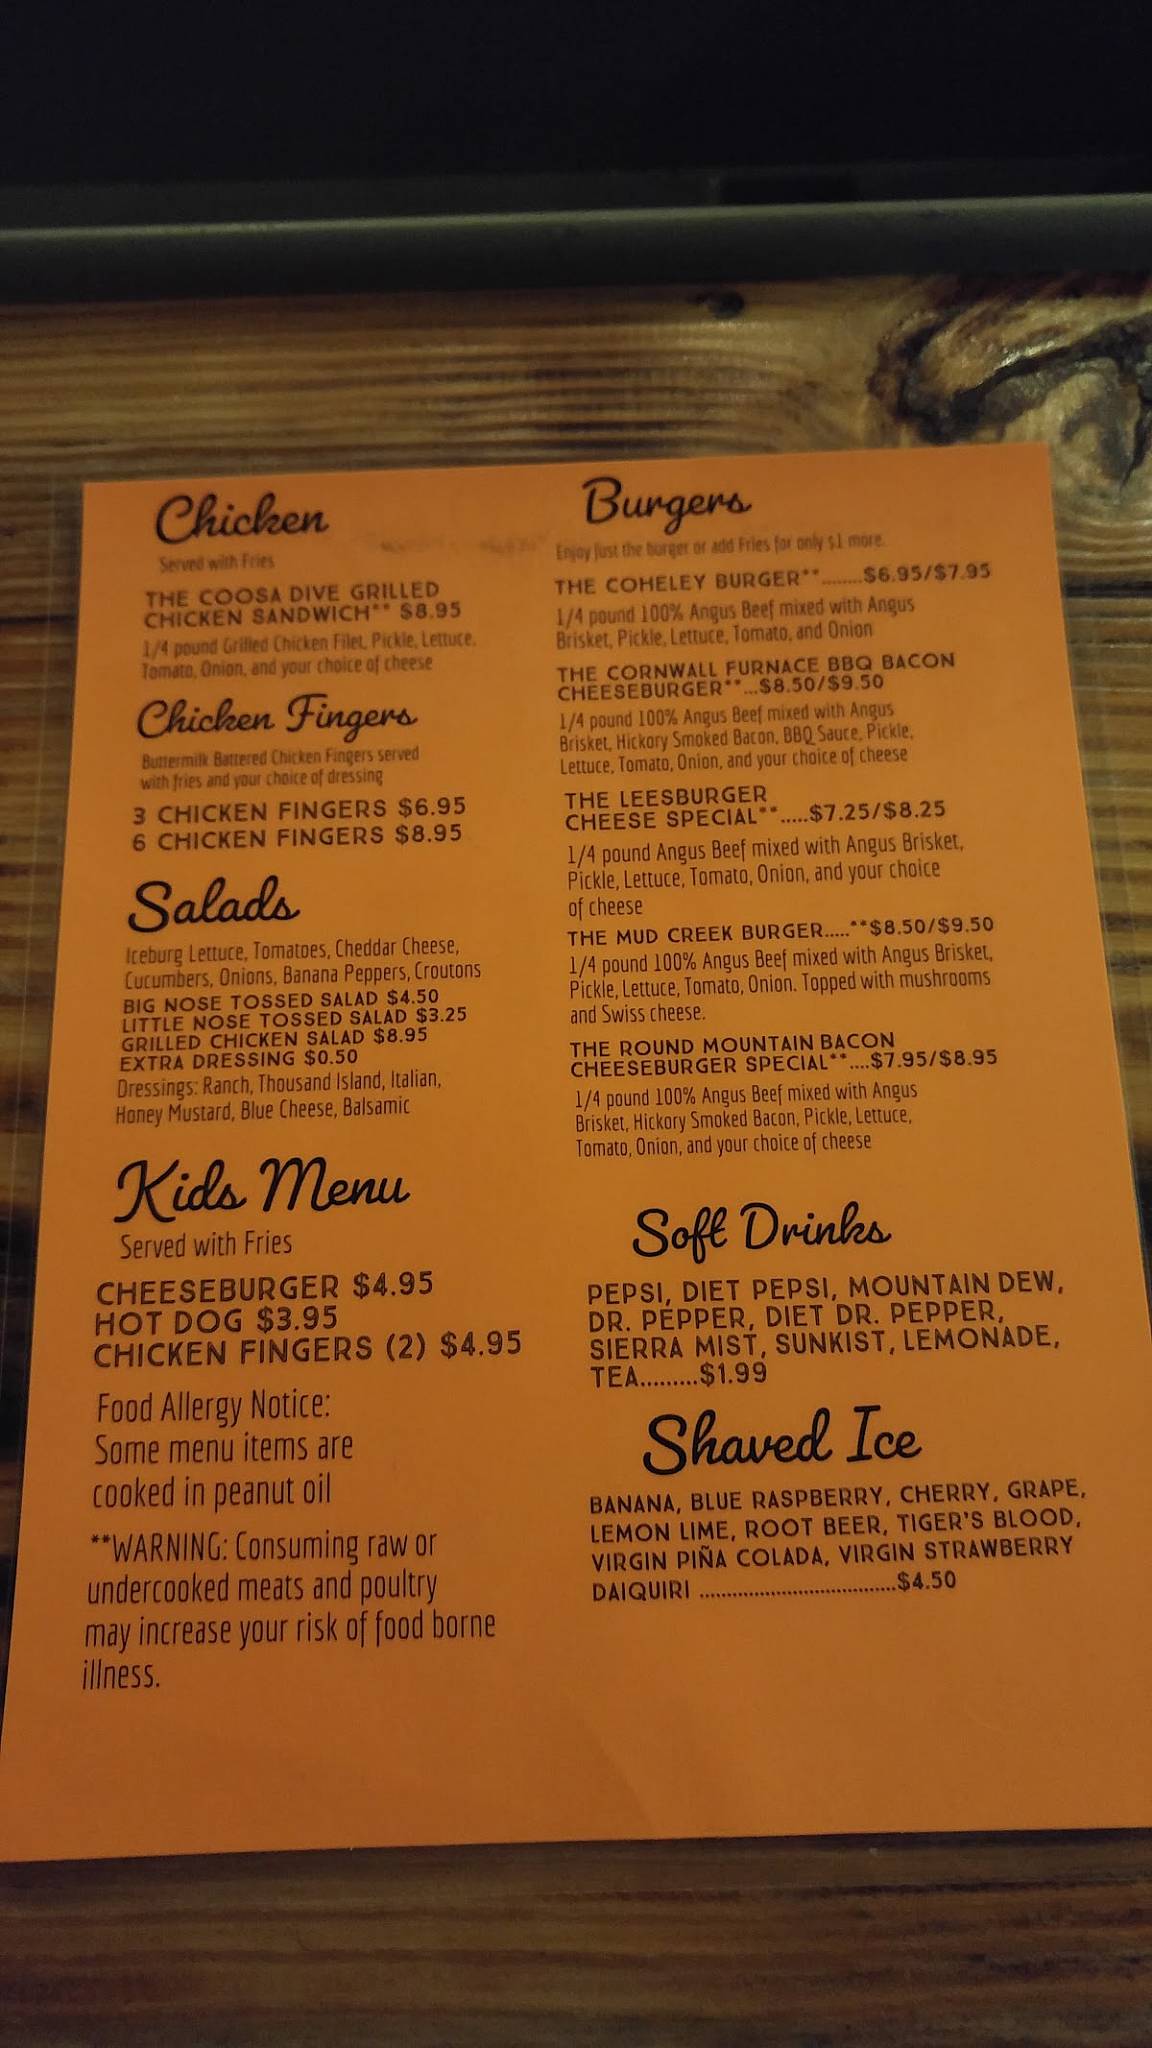 Chicken
Served with Fries
THE COOSA DIVE GRILLED
CHICKEN SANDWICH** $8.95
1/4 pound Grilled Chicken Filet, Pickle, Lettuce,
Tomato, Onion, and your choice of cheese
Chicken Fingers
Buttermilk Battered Chicken Fingers served
with fries and your choice of dressing
3 CHICKEN FINGERS $6.95
6 CHICKEN FINGERS $8.95
Salads
Iceburg Lettuce, Tomatoes, Cheddar Cheese,
Cucumbers, Onions, Banana Peppers, Croutons
BIG NOSE TOSSED SALAD $4.50
LITTLE NOSE TOSSED SALAD $3.25
GRILLED CHICKEN SALAD $8.95
EXTRA DRESSING $0.50
Dressings: Ranch, Thousand Island, Italian,
Honey Mustard, Blue Cheese, Balsamic
Kids Menu
Served with Fries
CHEESEBURGER $4.95
HOT DOG $3.95
CHICKEN FINGERS (2) $4.95
Food Allergy Notice:
Some menu items are
cooked in peanut oil
**WARNING: Consuming raw or
undercooked meats and poultry
may increase your risk of food borne
illness.
Burgers
Enjoy just the burger or add Fries for only $1 more.
THE COHELEY BURGER**........$6.95/$7.95
1/4 pound 100% Angus Beef mixed with Angus
Brisket, Pickle, Lettuce, Tomato, and Onion
THE CORNWALL FURNACE BBQ BACON
CHEESEBURGER**...$8.50/$9.50
1/4 pound 100% Angus Beef mixed with Angus
Brisket, Hickory Smoked Bacon, BBQ Sauce, Pickle,
Lettuce, Tomato, Onion, and your choice of cheese
THE LEESBURGER
CHEESE SPECIAL**.....$7.25/$8.25
1/4 pound Angus Beef mixed with Angus Brisket,
Pickle, Lettuce, Tomato, Onion, and your choice
of cheese
THE MUD CREEK BURGER.....**$8.50/$9.50
1/4 pound 100% Angus Beef mixed with Angus Brisket,
Pickle, Lettuce, Tomato, Onion. Topped with mushrooms
and Swiss cheese.
THE ROUND MOUNTAIN BACON
CHEESEBURGER SPECIAL**....$7.95/$8.95
1/4 pound 100% Angus Beef mixed with Angus
Brisket, Hickory Smoked Bacon, Pickle, Lettuce,
Tomato, Onion, and your choice of cheese
Soft Drinks
PEPSI, DIET PEPSI, MOUNTAIN DEW,
DR. PEPPER, DIET DR. PEPPER,
SIERRA MIST, SUNKIST, LEMONADE,
TEA.........$1.99
Shaved Ice
BANANA, BLUE RASPBERRY, CHERRY, GRAPE,
LEMON LIME, ROOT BEER, TIGER'S BLOOD,
VIRGIN PIÑA COLADA, VIRGIN STRAWBERRY
DAIQUIRI ...................................$4.50